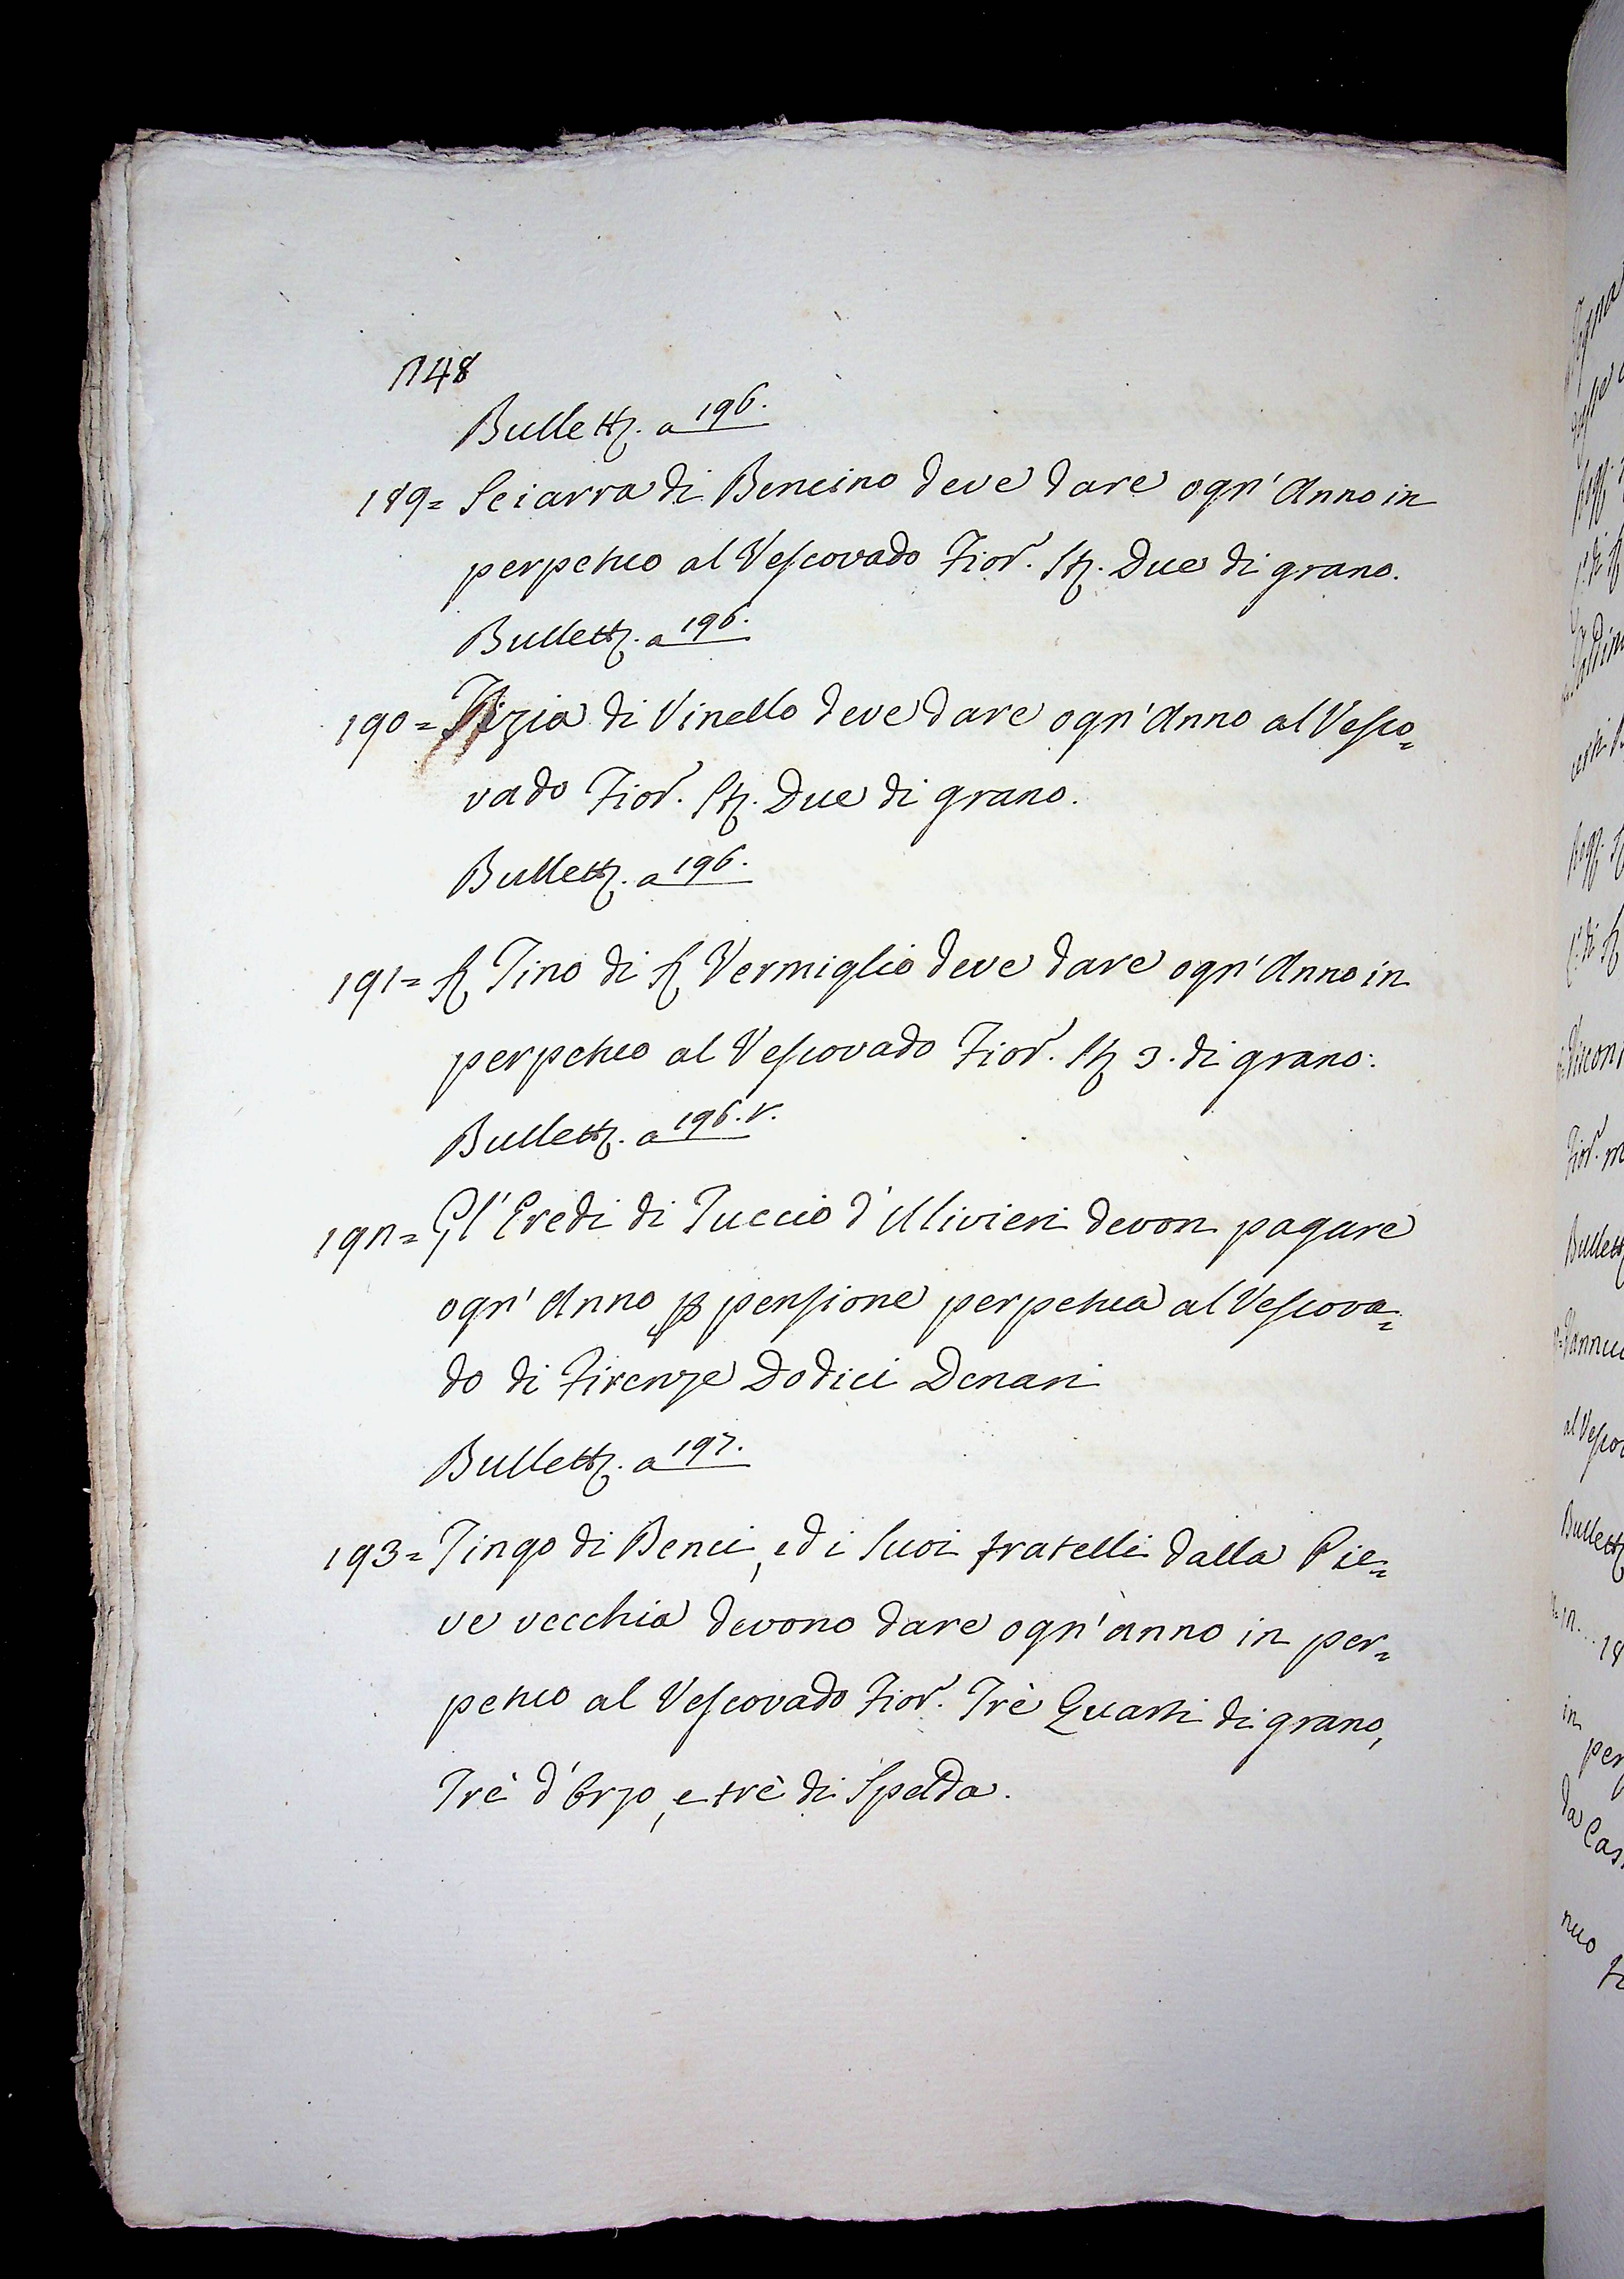 248
Bullett. a 196.
189= Sciarra di Bencino deve dare ogn'Anno in
perpetuo al Vescovado Fior. St. Due di grano.
Bullett. a 196.
190= Tizia di Vinello deve dare ogn'Anno al Vesco=
vado Fior. St. Due di grano.
Bullett. a 196.
191= Tino di Vermiglio deve dare ogn'Anno in
perpetuo al Vescovado Fior. St 3. di grano.
Bullett. a 196. v.
192= Gl'Eredi di Tuccio d'Ulivieri devon pagare
ogn'Anno p pensione perpetua al Vescova=
do di Firenze Dodici Denari
Bullett. a 197.
193= Tingo di Benci, ed i suoi fratelli dalla Pie=
ve vecchia devono dare ogn'anno in per=
petuo al Vescovado Fior. Trè Quarti di grano,
Trè d'Orzo, e trè di Spelda.